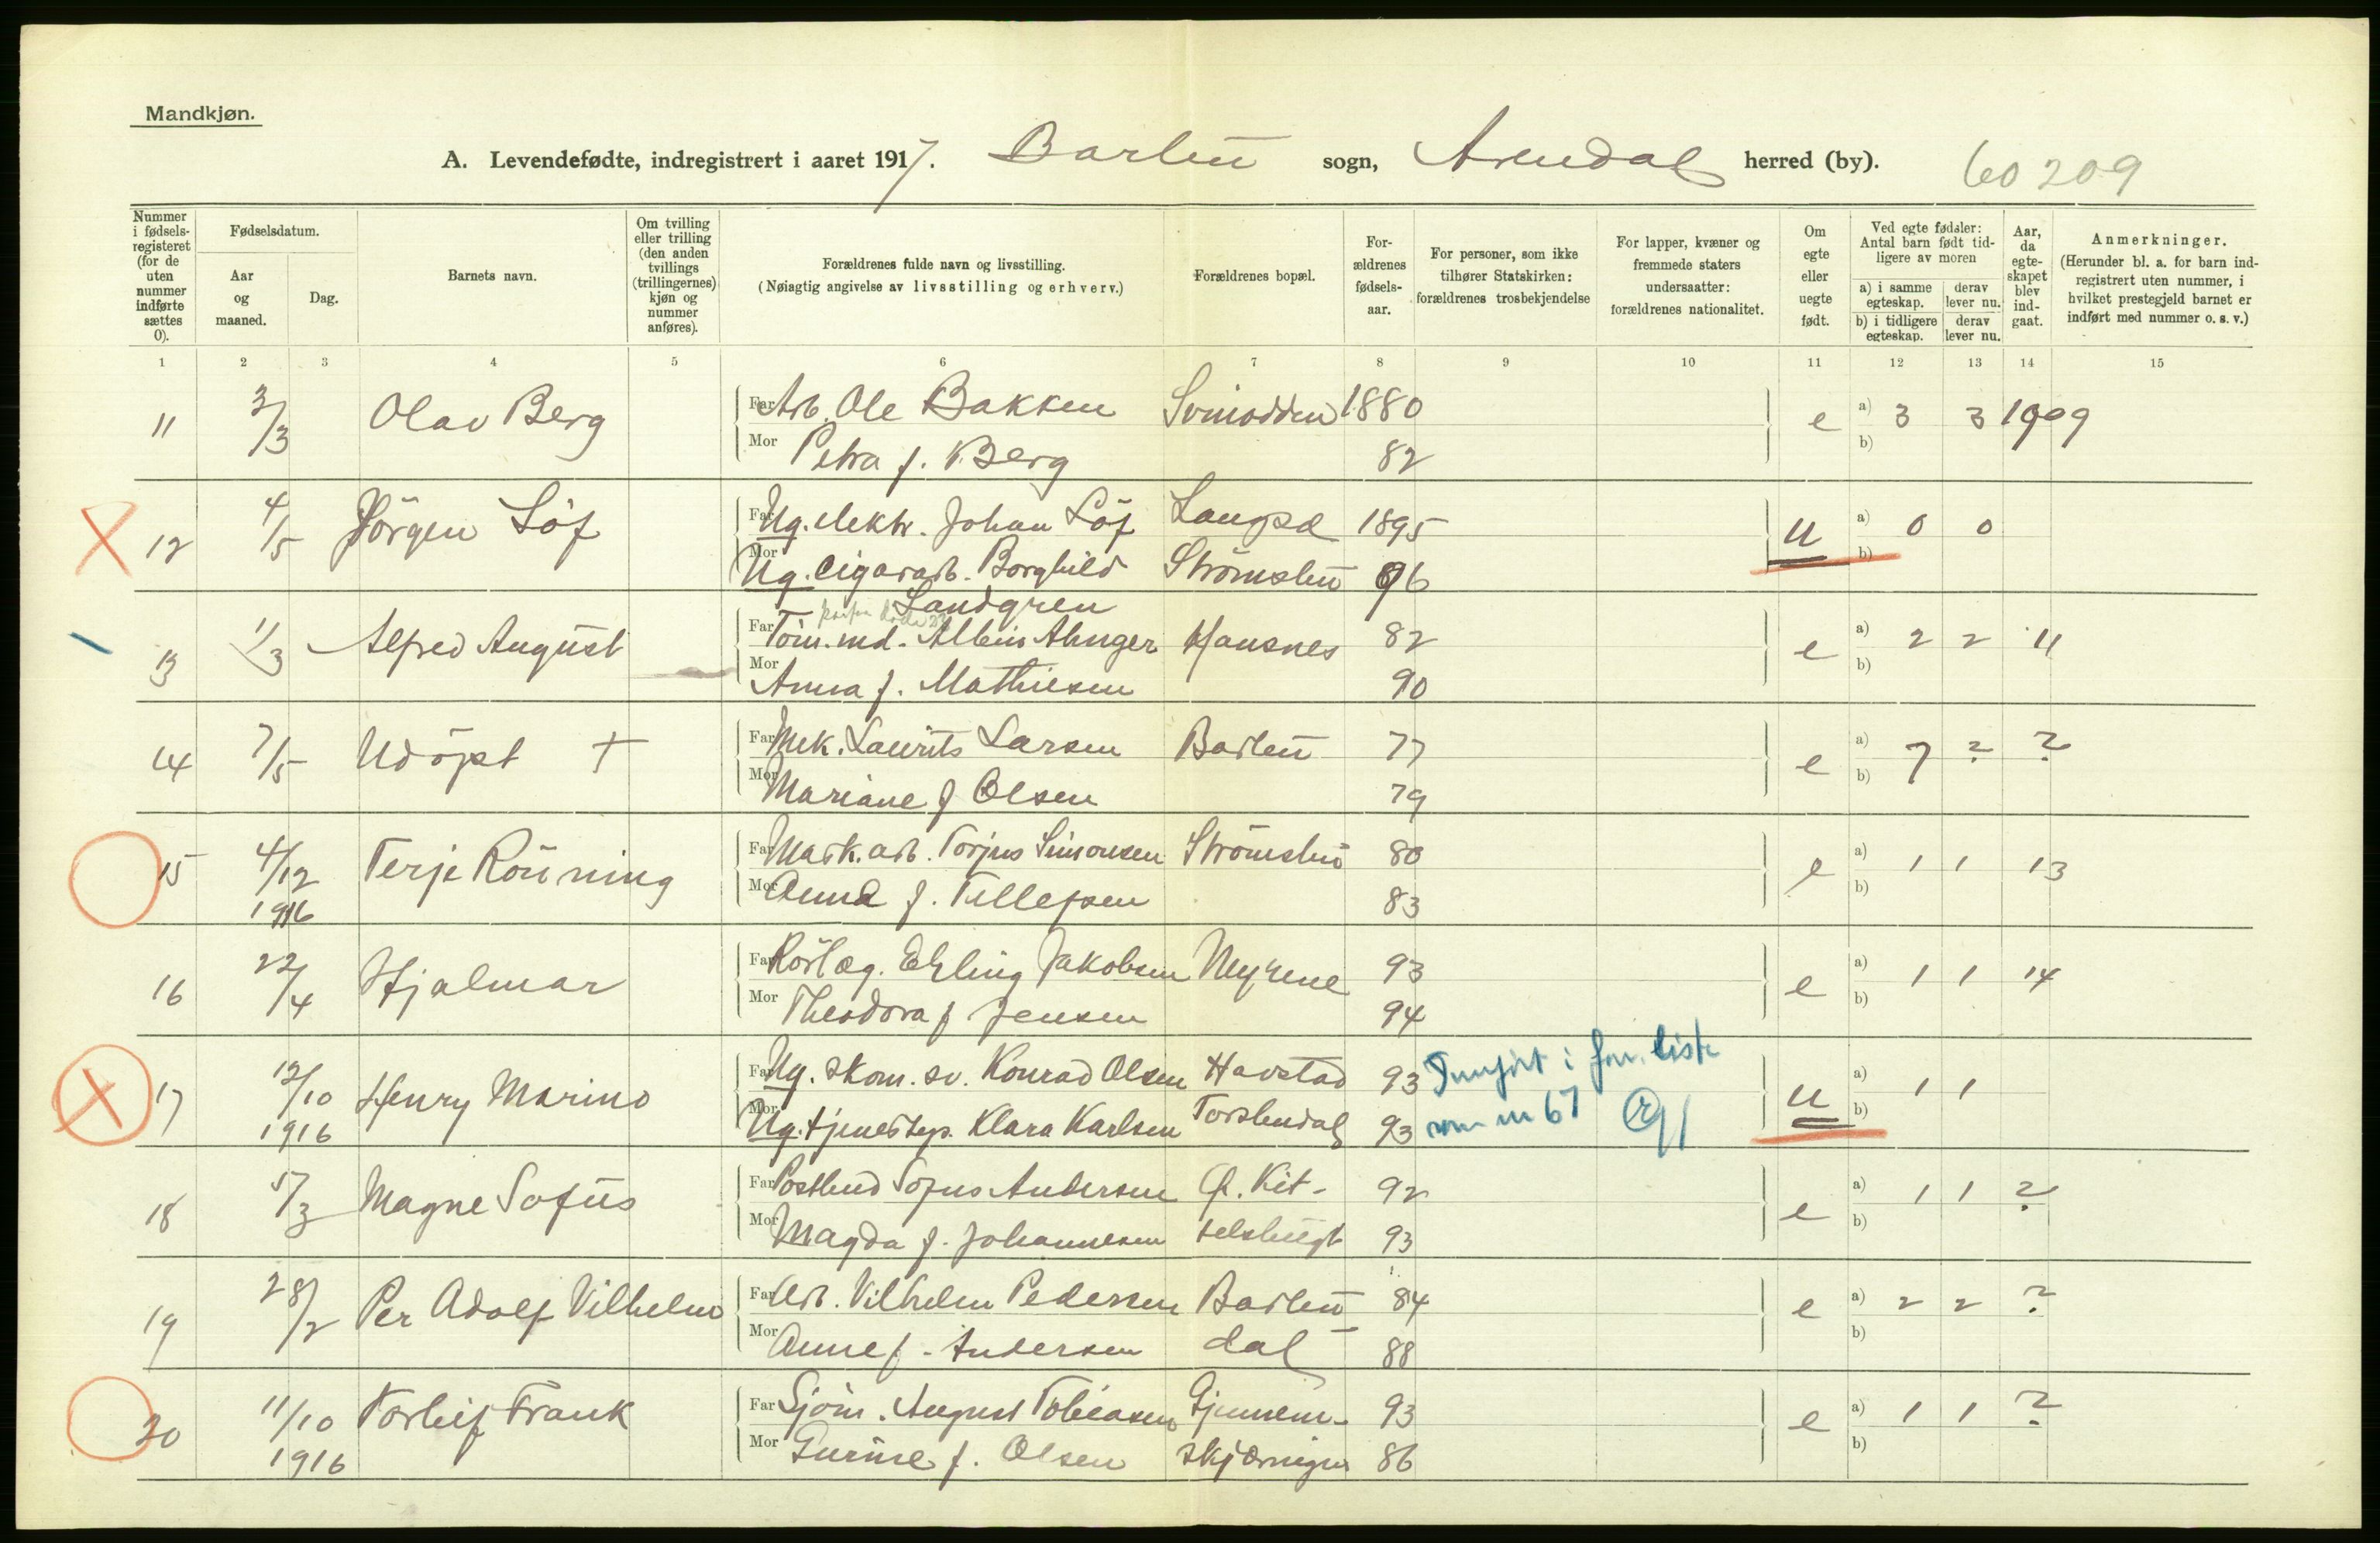 Mandkjøn.
A. Levendefødte, indregistrert i aaret 1917. Barbu sogn, Arendal herred (by). 60 209
Nummer i fødsels-registeret (for de uten nummer indførte sættes 0).
Fødselsdatum.
Aar og maaned.
Dag.
Barnets navn.
Om tvilling eller trilling (den anden tvillings (trillingernes) kjøn og nummer anføres).
Forældrenes fulde navn og livsstilling.
(Nøiagtig angivelse av livsstilling og erhverv.)
Forældrenes bopæl.
For-ældrenes fødsels-aar.
For personer, som ikke tilhører Statskirken: forældrenes trosbekjendelse
For lapper, kvæner og fremmede staters undersaatter: forældrenes nationalitet.
Om egte eller uegte født.
Ved egte fødsler: Antal barn født tid-ligere av moren
a) i samme egteskap.
derav lever nu.
b) i tidligere egteskap.
derav lever nu.
Aar, da egte-skapet blev ind-gaat.
Anmerkninger.
(Herunder bl. a. for barn ind-registrert uten nummer, i hvilket prestegjeld barnet er indført med nummer o. s. v.)
1 2 3 4 5 6 7 8 9 10 11 12 13 14 15
11 3/3 Olav Berg Far Arb. Ole Bakken Svinodden 1880 e a) 3 3 1909
Mor Petra f. Berg 82 b)
12 4/5 Jörgen Löf Far Ug. elektr. Johan Löf Langsæ 1895 u a) 0 0
Mor Ug. cigararb. Borghild Landgren Strömsbu 96 b)
13 11/3 Alfred August Far Töm.md. Albin Ahnger Hausnes 82 e a) 2 2 11
Mor Anna f. Mathiesen 90 b)
14 7/5 Udöpt † Far Mek. Laurits Larsen Barbu 77 e a) 7 ? ?
Mor Mariane f Olsen 79 b)
15 4/12 1916 Terje Rönning Far Mask.arb. Torjus Simonsen Strömsbu 80 e a) 1 1 13
Mor Anna f. Tellefsen 83 b)
16 22/4 Hjalmar Far Rörlæg. Erling Jakobsen Myrene 93 e a) 1 1 14
Mor Theodora f Jensen 94 b)
17 12/10 1916 Henry Marino Far Ug. skom. sv. Konrad Olsen Havstad 93 Innført i for. liste u a) 1 1
Mor Ug. tjenestep. Klara Karlsen Torsbudal 93 som nr 67 b)
18 5/3 Magne Sofus Far Postbud Sofus Andersen P. Kit- 92 e a) 1 1 ?
Mor Magda f. Johannesen telsbugt 93 b)
19 28/2 Per Adolf Vilhelm Far Arb. Vilhelm Pedersen Barbu- 84 e a) 2 2 ?
Mor Anne f. Andersen dal 88 b)
20 11/10 1916 Torleif Frank Far Sjöm. August Tobiasen Gjennem- 93 e a) 1 1 ?
Mor Gurine f. Olsen skjæringen 86 b)